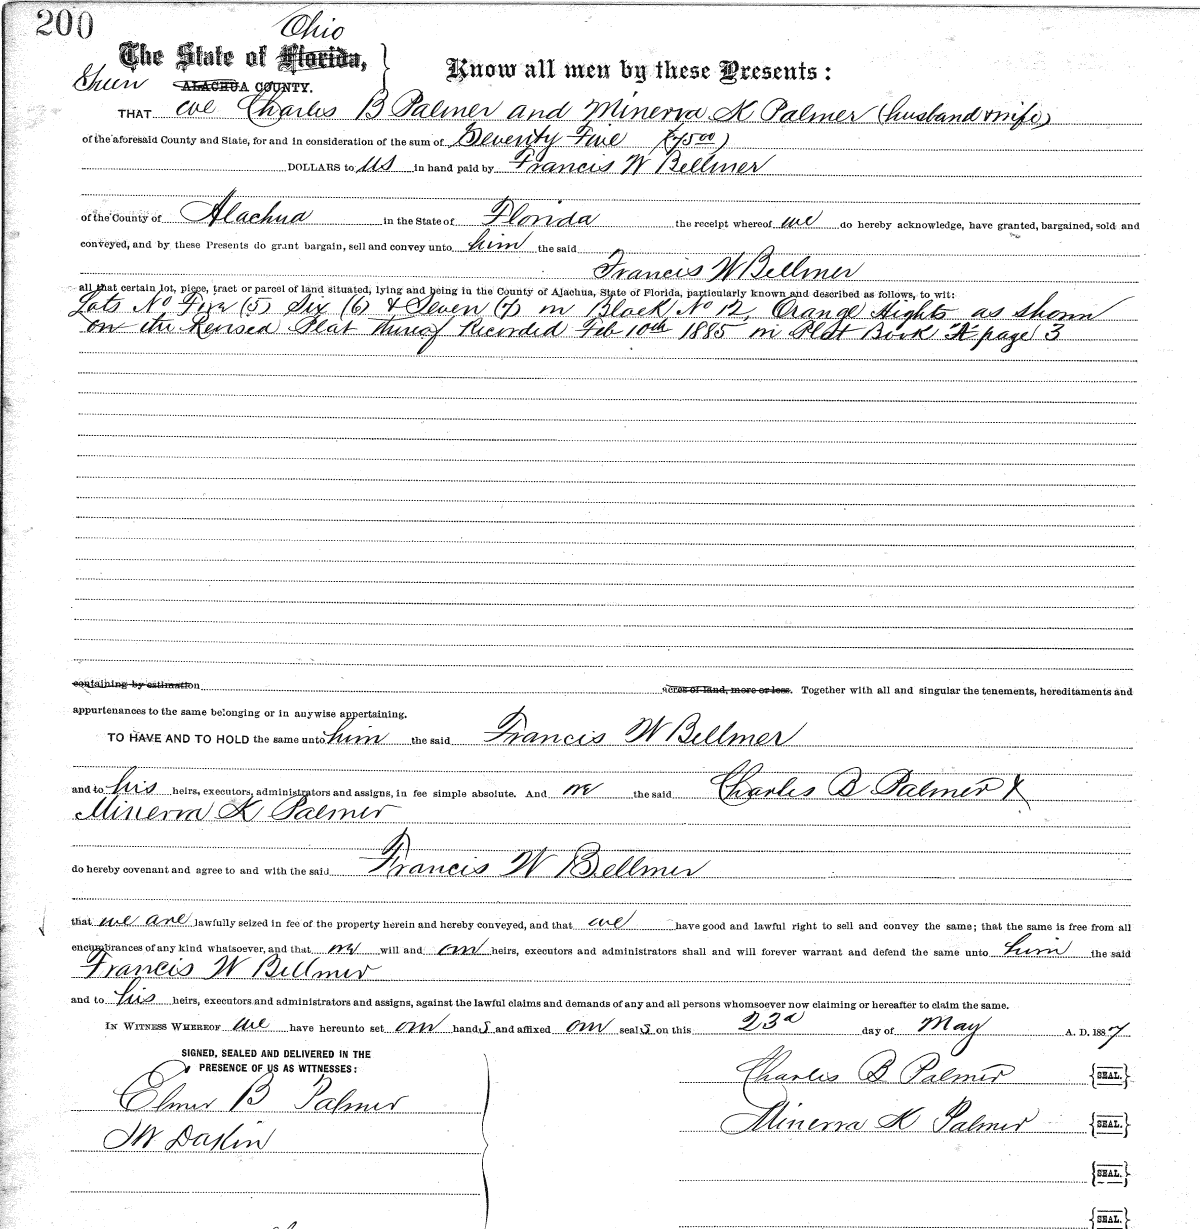 200
Ohio
The State of Florida,
Know all men by these Presents :
Green ALACHUA COUNTY.
THAT we Charles B Palmer and Minerva K Palmer (husband & wife)
of the aforesaid County and State, for and in consideration of the sum of Seventy Five (75 00)
DOLLARS to us in hand paid by Francis W Bellmer
of the County of Alachua in the State of Florida the receipt whereof we do hereby acknowledge, have granted, bargained, sold and
conveyed, and by these Presents do grant bargain, sell and convey unto him the said
Francis W Bellmer
all that certain lot, piece, tract or parcel of land situated, lying and being in the County of Alachua, State of Florida, particularly known and described as follows, to wit:
Lots No Five (5) Six (6) & Seven (7) in Block No 12, Orange Hights as shown
on the Revised Plat thereof Recorded Feb 10th 1885 in Plat Book "A" page 3
containing by estimation acres of land, more or less. Together with all and singular the tenements, hereditaments and
appurtenances to the same belonging or in anywise appertaining.
TO HAVE AND TO HOLD the same unto him the said Francis W Bellmer
and to his heirs, executors, administrators and assigns, in fee simple absolute. And we the said Charles B Palmer &
Minerva K Palmer
do hereby covenant and agree to and with the said Francis W Bellmer
that we are lawfully seized in fee of the property herein and hereby conveyed, and that we have good and lawful right to sell and convey the same; that the same is free from all
encumbrances of any kind whatsoever, and that we will and our heirs, executors and administrators shall and will forever warrant and defend the same unto him the said
Francis W Bellmer
and to his heirs, executors and administrators and assigns, against the lawful claims and demands of any and all persons whomsoever now claiming or hereafter to claim the same.
IN WITNESS WHEREOF we have hereunto set our hands and affixed our seals on this 23d day of May A. D. 1887
SIGNED, SEALED AND DELIVERED IN THE
PRESENCE OF US AS WITNESSES:
Charles B Palmer {SEAL.}
Elmer B Palmer
Minerva K Palmer {SEAL.}
{SEAL.}
{SEAL.}